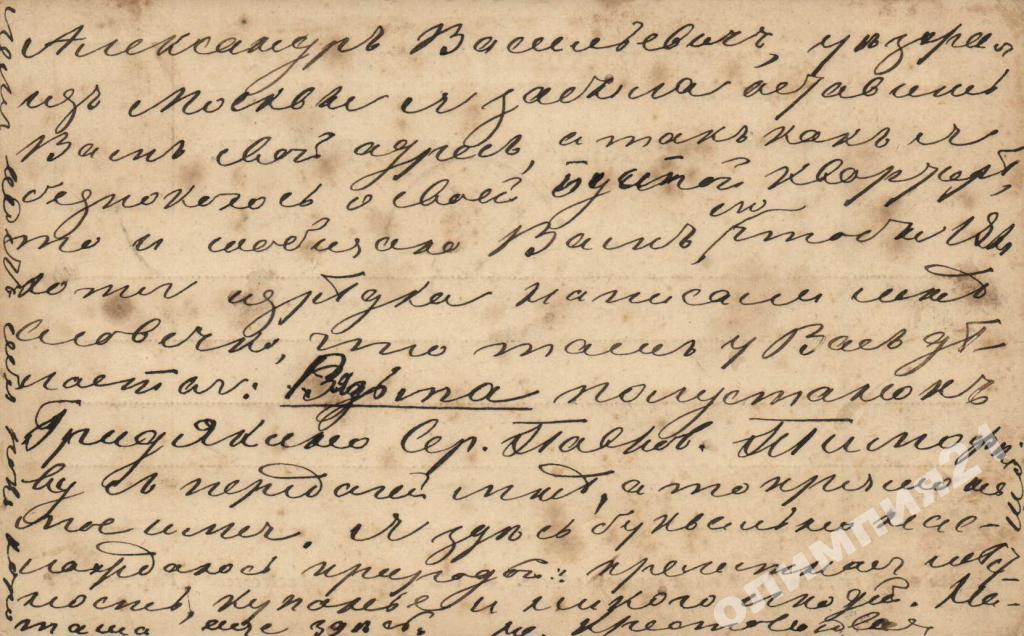 Александръ Васильевичъ, уѣзжая
изъ Москвы я забыла оставить
Вамъ свой адресъ, а такъ какъ я
безпокоюсь о своей пустой квартирѣ,
то и сообщаю Вамъ его, чтобы Вы
хотя изрѣдка написали мнѣ
словечко, что тамъ у Васъ дѣ-
лается: Вязьма полустанокъ
Гридякино Сер. Павлов. Тимофѣе-
ву съ передачей мнѣ, а то прямо на
мое имя. Я здѣсь буквально нас-
лаждаюсь природой: прелестная мѣст-
ность, купанье и много ягодъ. На-
таша еще здѣсь.
олимпия21